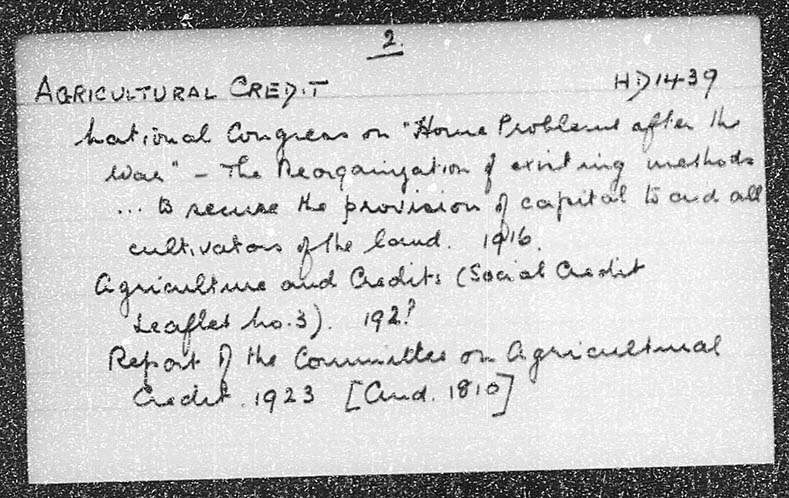 2.
AGRICULTURAL CREDIT HD1439
National Congress on "Home Problems after the
War" - The Reorganization of existing methods
... to secure the provision of capital to aid all
cultivators of the land. 1916.
Agriculture and Credits (Social Credit
Leaflet No.3). 192?
Report of the Committee on Agricultural
Credit. 1923 [Cmd. 1810]